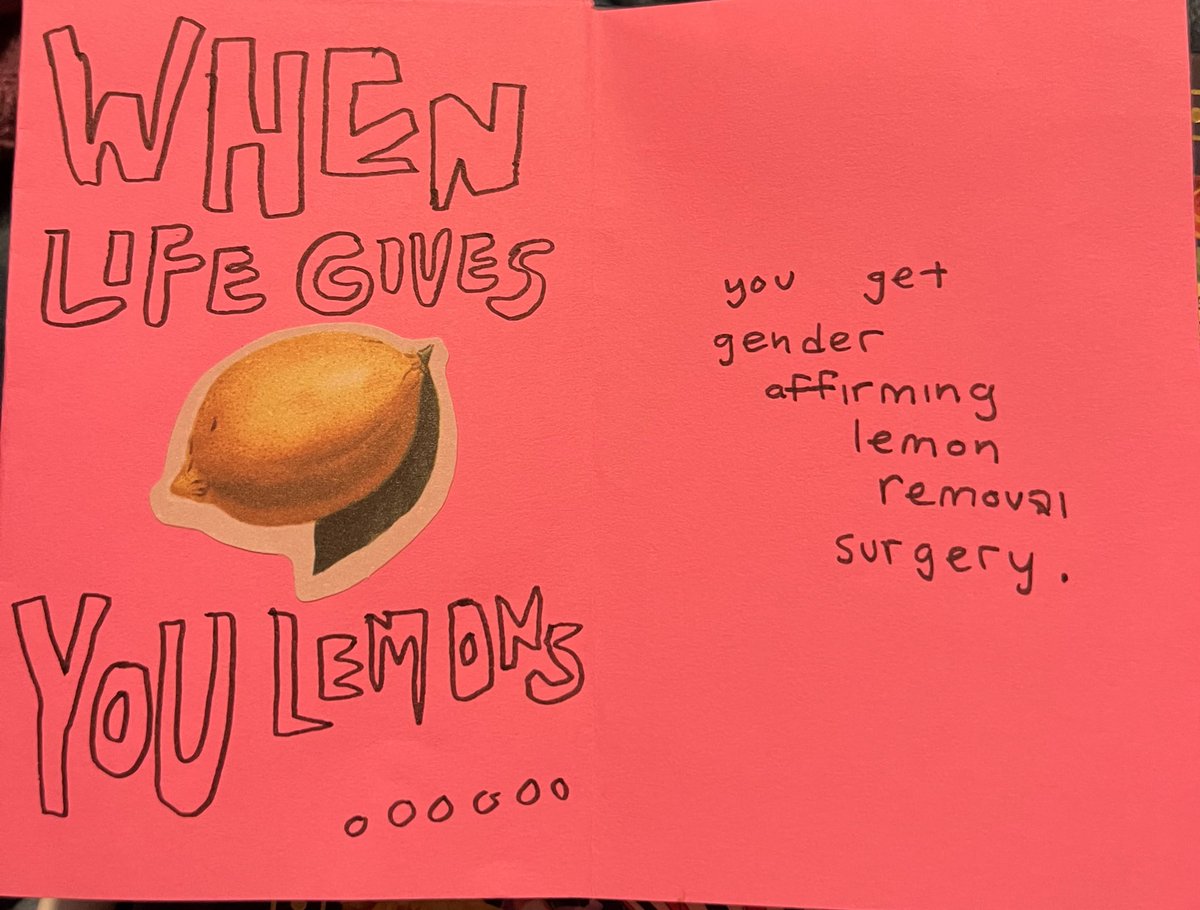 WHEN
LIFE GIVES
YOU LEMONS
......
you get
gender
affirming
lemon
removal
surgery.